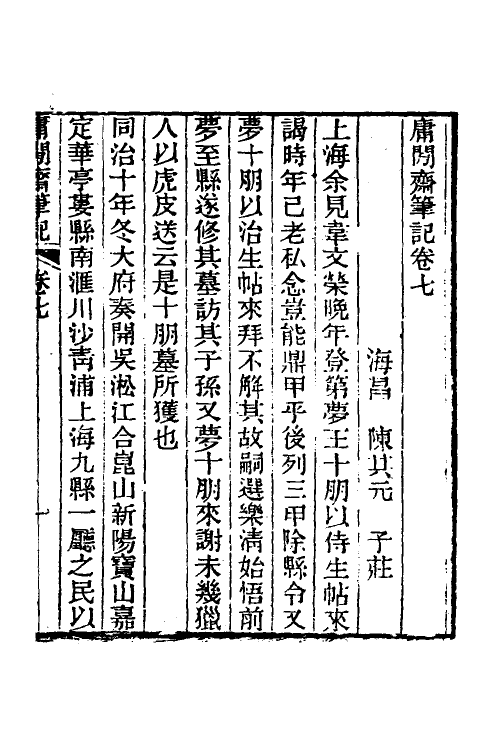 庸閒齋筆記卷七
海昌　陳其元　子莊
上海余見韋文榮晚年登第夢王十朋以侍生帖來
謁時年已老私念豈能鼎甲乎後列三甲除縣令又
夢十朋以治生帖來拜不解其故嗣選樂淸始悟前
夢至縣遂修其墓訪其子孫又夢十朋來謝未幾獵
人以虎皮送云是十朋墓所獲也
同治十年冬大府奏開吳淞江合崑山新陽寶山嘉
定華亭婁縣南滙川沙靑浦上海九縣一廳之民以
庸閒齋筆記　卷七　一